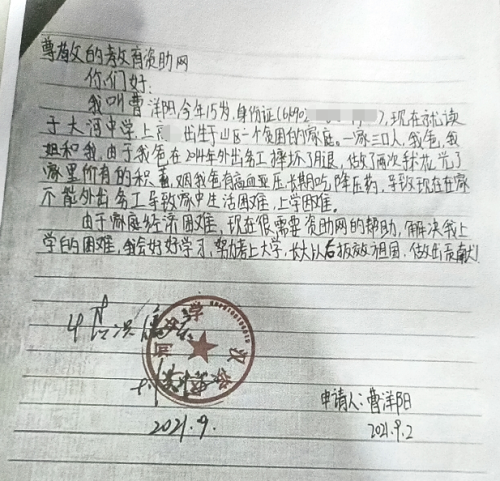 尊敬的教育资助网
你们好:
我叫曹洋阳,今年15岁,身份证(6190),现在就读
于大河中学上高 出生于山区一个贫困的家庭。一家三口人,我爸,我
姐和我,由于我爸在2014年外出务工摔坏了腿,做了两次手术花光了
家里所有的积蓄,因我爸有高血压长期吃降压药,导致现在在家
不能外出务工导致家中生活困难,上学困难。
由于家庭经济困难,现在很需要资助网的帮助,解决我上
学的困难,我会好好学习,努力考上大学,长大以后报效祖国,做出贡献!
情况
2021.9.
申请人:曹洋阳
2021.9.2